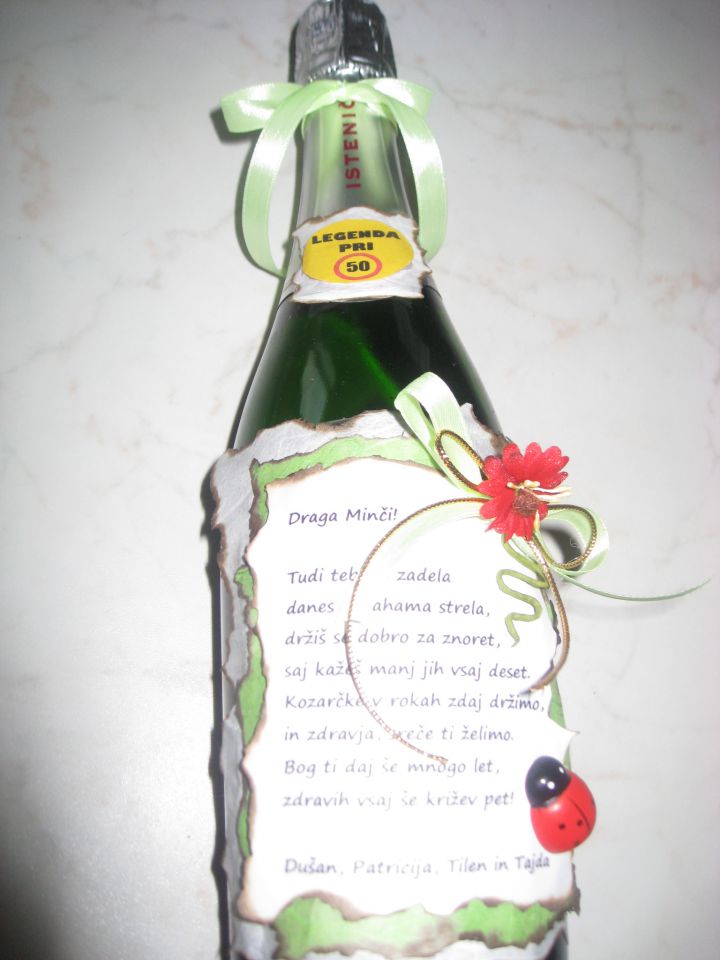 ISTENIČ
LEGENDA
PRI
50
Draga Minči!
Tudi zadela
danes strela,
držiš se dobro za znoret,
saj kažeš manj jih vsaj deset.
Kozarčke v rokah zdaj držimo,
in zdravja, sreče ti želimo.
Bog ti daj še mnogo let,
zdravih vsaj še križev pet!
Dušan, Patricija, Tilen in Tajda